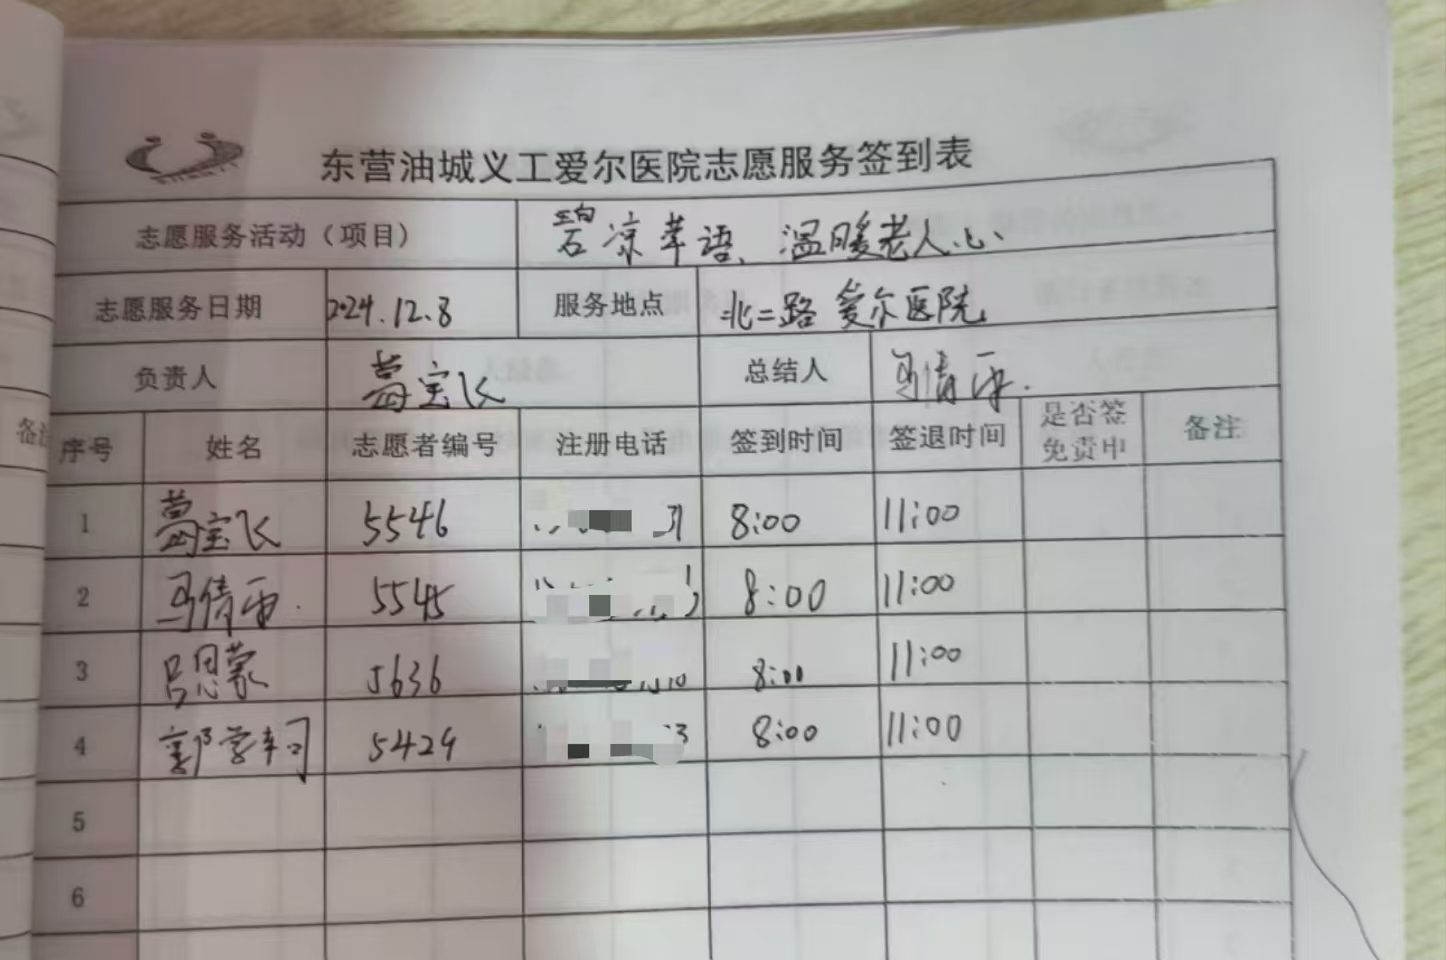 东营油城义工爱尔医院志愿服务签到表
志愿服务活动（项目） 碧凉草语、温暖老人心
志愿服务日期 2024.12.8 服务地点 北二路 爱尔医院
负责人 葛宝飞 总结人
序号 姓名 志愿者编号 注册电话 签到时间 签退时间 是否签免费中 备注
1 葛宝飞 5546 8:00 11:00
2 5545 8:00 11:00
3 吕思蒙 5636 8:00 11:00
4 5429 8:00 11:00
5
6
备注